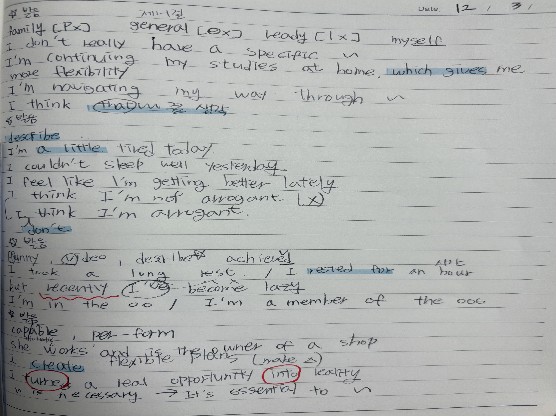 발음 제니쌤 Date. 12 / 3 /
family [Px] general [ex] ready [lx] myself
I don't really have a specific ~
I'm continuing my studies at home, which gives me
more flexibility
I'm navigating my way through ~
I think
발음
describe
I'm a little tired today
I couldn't sleep well yesterday
I feel like I'm getting better lately
I think I'm not arrogant (x)
I think I'm arrogant.
don't
발음
funny, video, describe achieved
I took a long rest. / I rested for an hour
but recently I've become lazy
I'm in the oo / I'm a member of the ooo
발음
capable, per-form
She works and is the owner of a shop
I create flexible plans (make x)
I turned a real opportunity into reality
~ is necessary → It's essential to ~